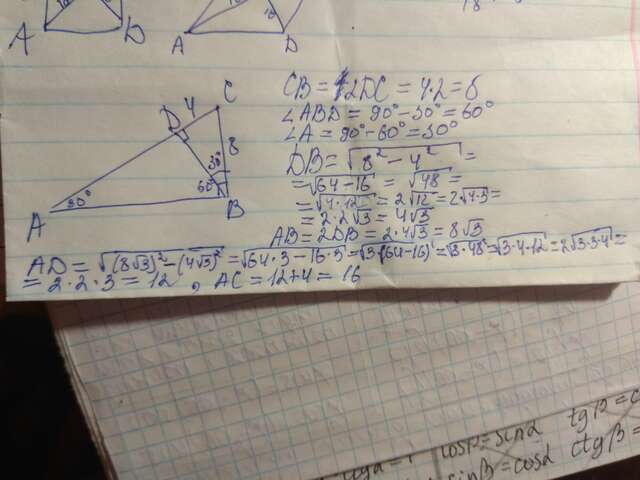 A
D
A
D
C
D
4
8
30°
60°
30°
A
B
CB = 2DC = 4·2 = 8
∠ABD = 90° - 30° = 60°
∠A = 90° - 60° = 30°
DB = √8² - 4² =
= √64 - 16 = √48 =
= √4·12 = 2√12 = 2√4·3 =
= 2·2√3 = 4√3
AB = 2DB = 2·4√3 = 8√3
AD = √(8√3)² - (4√3)² = √64·3 - 16·3 = √3·(64-16) = √3·48 = √3·4·12 = 2√3·3·4 =
= 2·2·3 = 12, AC = 12+4 = 16
cosβ = sinα
sinβ = cosα
tgβ = c
ctgβ =